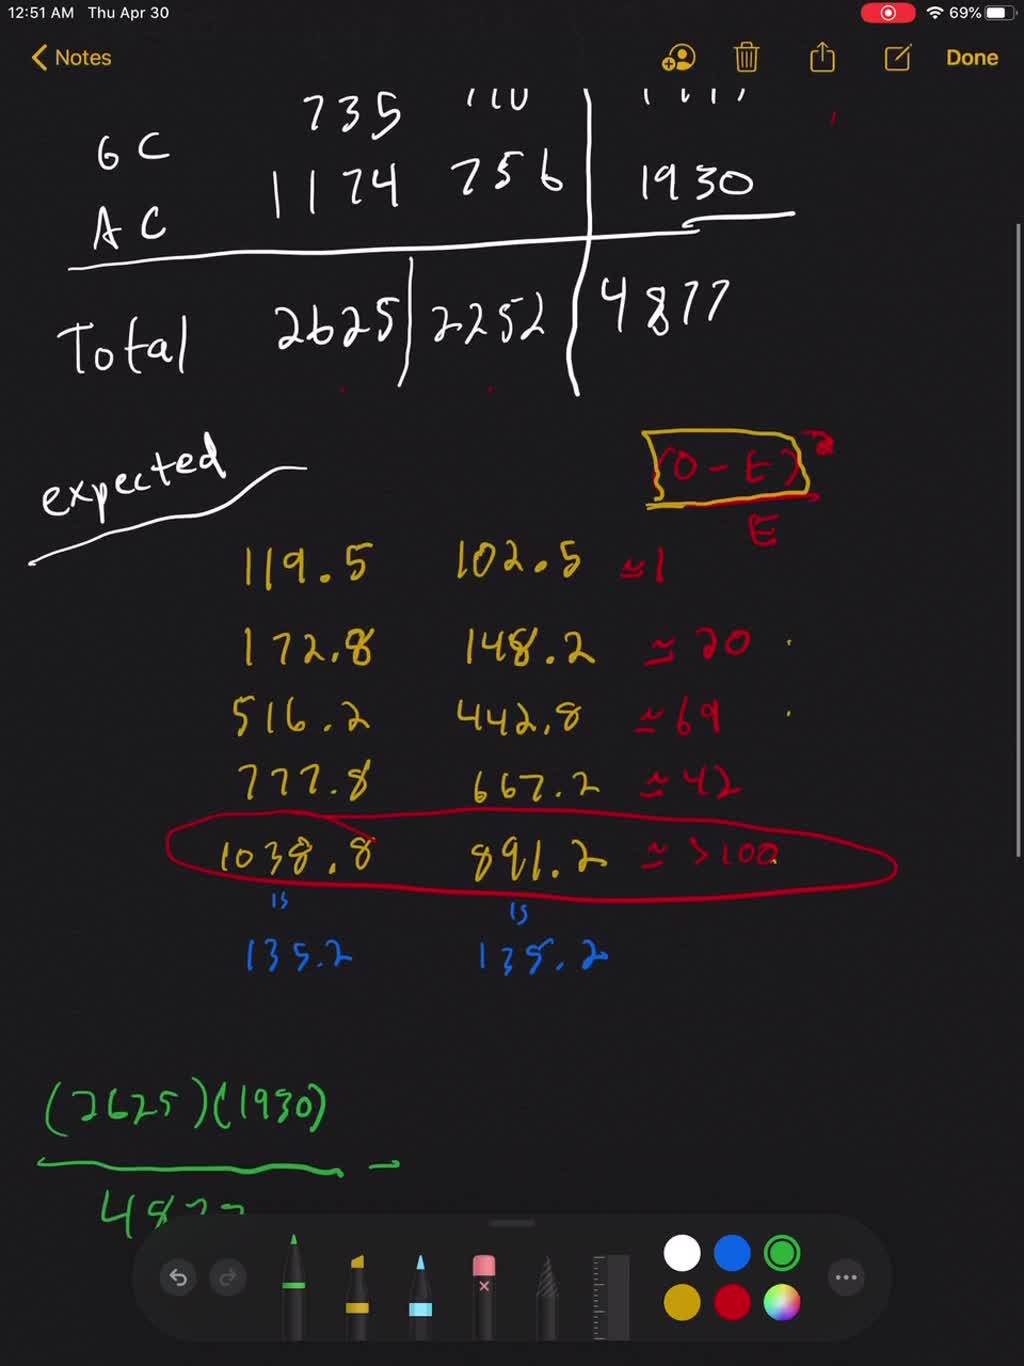 12:51 AM Thu Apr 30 69%
Notes Done
GC 735
AC 1174 756 1930
Total 2625 2252 4877
expected
(O-E)²
E
119.5 102.5 ≃1
172.8 148.2 ≃20
516.2 442.8 ≃69
777.8 667.2 ≃42
1038.8 891.2 ≃>100
is is
135.2 135.2
(2625)(1930)
4877